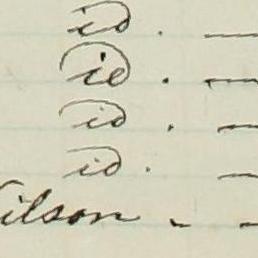 id. —
id. —
id. —
id. —
ilson. -